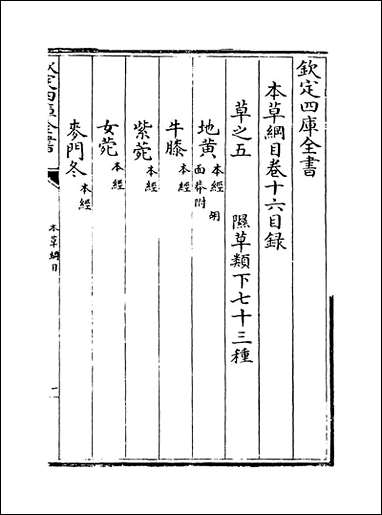 欽定四庫全書
本草綱目卷十六目録
草之五 隰草類下七十三種
地黄 本經 胡面莽附
牛膝 本經
紫菀 本經
女菀 本經
麥門冬 本經
欽定四庫全書
本草綱目